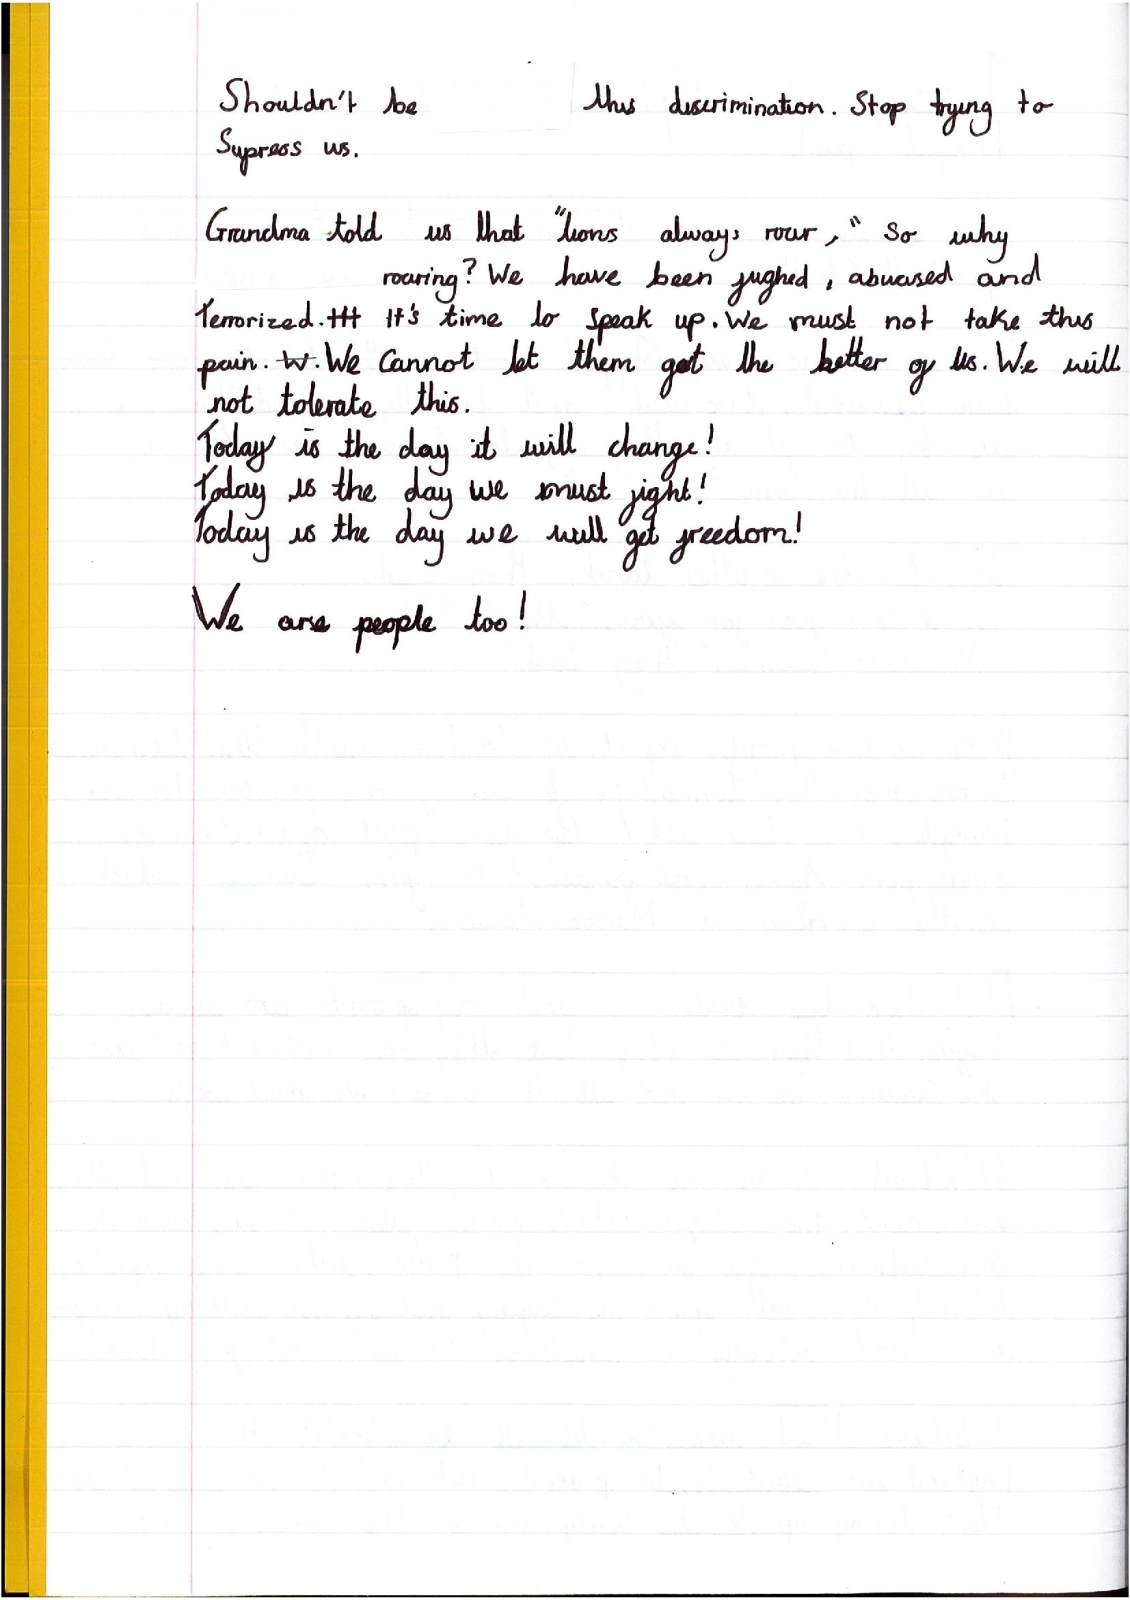 Shouldn't be this discrimination. Stop trying to
Supress us.
Grandma told us that "lions always roar," So why
roaring? We have been jughed, abucased and
Terrorized. It's time to speak up. We must not take this
pain. We cannot let them get the better of us. We will
not tolerate this.
Today is the day it will change!
Today is the day we must fight!
Today is the day we will get freedom!
We are people too!